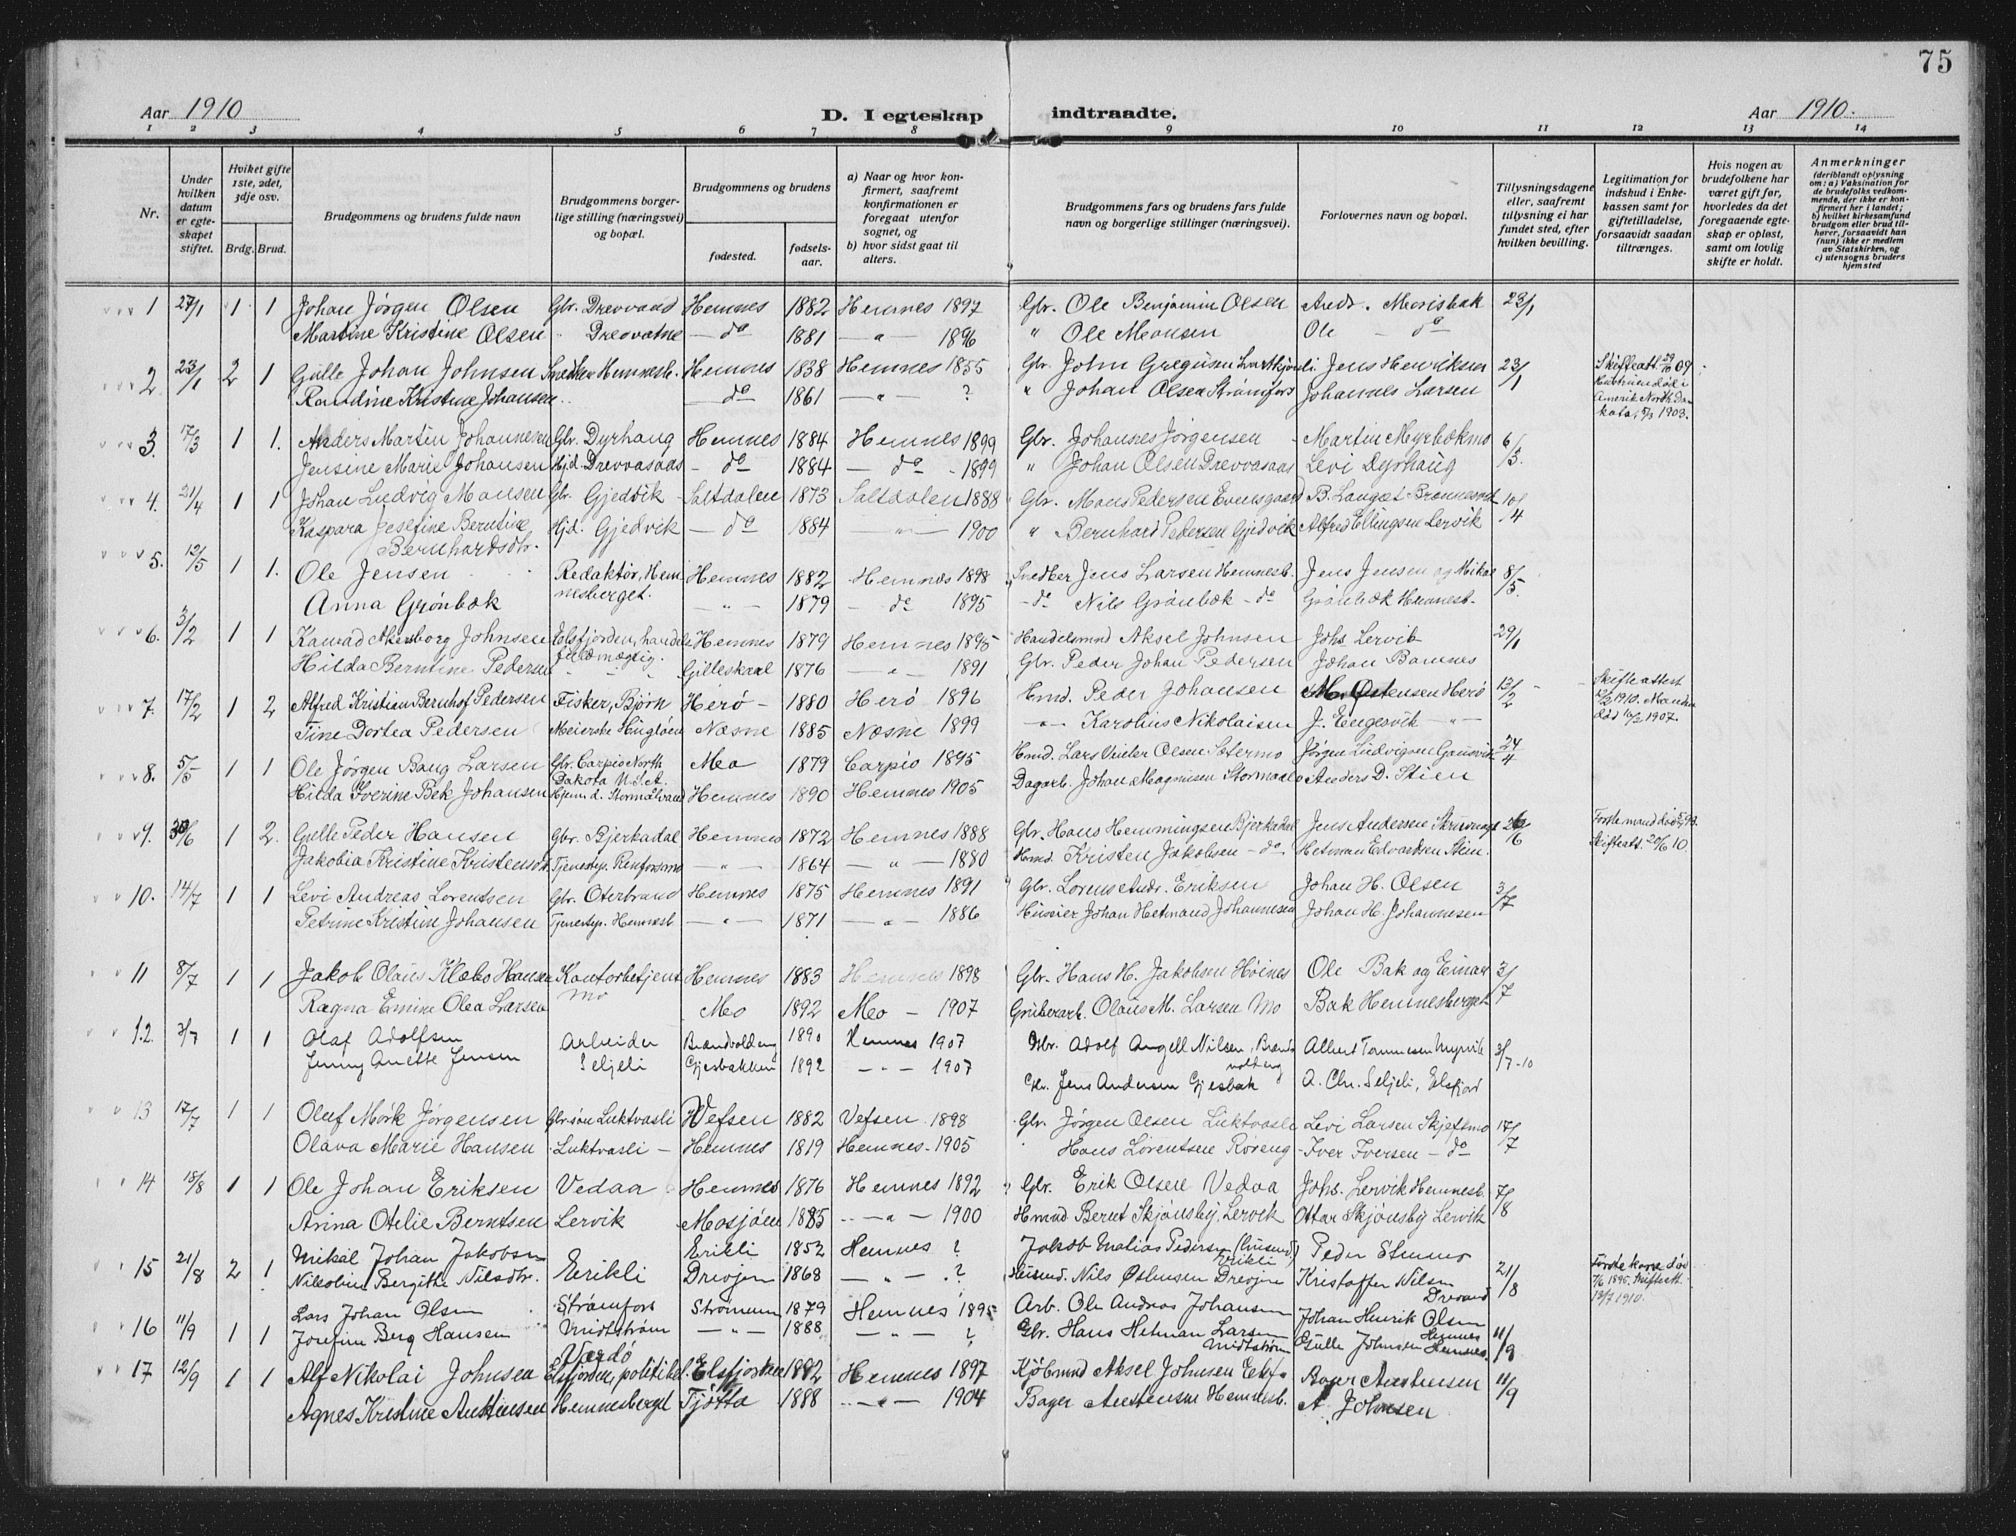 75
Aar 1910 D. I egteskap indtraadte. Aar 1910.
1 2 3 4 5 6 7 8 9 10 11 12 13 14
Nr.
Under hvilken datum er egteskapet stiftet.
Hvilket gifte 1ste, 2det, 3dje osv.
Brdg. Brud.
Brudgommens og brudens fulde navn
Brudgommens borgerlige stilling (næringsvei) og bopæl.
Brudgommens og brudens
fødested. fødselsaar.
a) Naar og hvor konfirmert, saafremt konfirmationen er foregaat utenfor sognet, og
b) hvor sidst gaat til alters.
Brudgommens fars og brudens fars fulde navn og borgerlige stillinger (næringsvei).
Forlovernes navn og bopæl.
Tillysningsdagene eller, saafremt tillysning ei har fundet sted, efter hvilken bevilling.
Legitimation for indskud i Enkekassen samt for giftetilladelse, forsaavidt saadan tiltrænges.
Hvis nogen av brudefolkene har været gift før, hvorledes da det foregaaende egteskap er opløst, samt om lovlig skifte er holdt.
Anmerkninger (deriblandt oplysning om: a) Vaksination for de brudefolks vedkommende, der ikke er konfirmert her i landet; b) hvilket kirkesamfund brudgom eller brud tilhører, forsaavidt han (hun) ikke er medlem av Statskirken, og c) utensogns bruders hjemsted
1 27/1 1 1 Johan Jørgen Olsen Gbr. Drevvand Hemnes 1882 Hemnes 1897 Gbr. Ole Benjamin Olsen Andr. Morisbak 23/1
Martine Kristine Olsen " Drevvatne — do — 1881 — " — 1896 " Ole Monsen Ole — do
2 23/1 2 1 Gulle Johan Johnsen Snedker Hemnesb. Hemnes 1838 Hemnes 1855 Gbr. John Gregusen Jens Henriksen 23/1 Skifteatt. 29/10 09.
Randine Kristine Johansen — do — 1861 — " — ? " Johan Olsen Strømfors Johannes Larsen Hustruen død i Amerik. North Dakota, 1903.
3. 17/3 1 1. Anders Martin Johannesen Gbr. Dyrhaug Hemnes 1884 Hemnes 1899 Gbr. Johannes Jørgensen Martin Myrbækmo 6/3.
Jensine Marie Johansen Hjd. Drevvasaas — do — 1884 — do — 1899 " Johan Olsen Drevvasaas Levi Dyrhaug
4. 21/4 1 1 Johan Ludvig Monsen Gbr. Gjedvik Saltdalen 1873 Saltdalen 1888 Gbr. Mons Pedersen Evensgaard B. Langset Brønnesund 10/4
Kaspara Josefine Berntine Hjd. Gjedvik — do — 1884 — " — 1900 " Bernhard Pedersen Gjedvik Alfred Ellingsen Lervik
Bernhardsdtr.
5. 12/5 1 1. Ole Jensen Redaktør, Hemnesberget. Hemnes 1882 Hemnes 1898 Snedker Jens Larsen Hemnesb. Jens Jensen og Mikal 8/5
Anna Grønbæk — " — 1879 — do — 1895 — do Nils Grønbæk — do Grønbæk Hemnesb.
6. 3/2 1 1 Konrad Johnsen Elsfjorden, handels fuldmægtig. Hemnes 1879 Hemnes 1895 Handelsmnd Aksel Johnsen Johs. Lervik 29/1
Hilda Berntine Pedersen Gilleskaal 1876 — " — 1891 Gbr. Peder Johan Pedersen Johan Bamnes
7. 17/2 1 2 Alfred Kristian Bernhof Pedersen Fisker, Bjørn Herø 1880 Herø 1896 Hmd. Peder Johansen M. Østensen Herø 13/2 Skifteattest
Tine Dortea Pedersen Meierske Hugløen Næsne 1885 Næsne 1899 — " — Karolius Nikolaisen J. Engesvik — " — 1910. Manden død 1907.
8. 5/5 1 1 Ole Jørgen Bang Larsen Gbr. Carpio North Dakota U.S.A. Mo 1879 Carpio 1895 Hmd. Lars Olsen Sætermo Jørgen Ludvigsen 24/4
Hilda Iverine Bek Johansen Hjem d. Stormålvand Hemnes 1890 Hemnes 1905 Dagarb. Johan Magnusen Anders D. Stien
9. 30/6 1 2. Gulle Peder Hansen Gbr. Bjerkadal Hemnes 1872 Hemnes 1888 Gbr. Hans Hemmingsen Bjerkadal Jens Andersen 26/6 Første mand død
Jakobia Kristine Kristensdt. Tjenestep. — " — 1864 — " — 1880 Hmd. Kristen Jakobsen — do Hetman Edvardsen Stien Skifteatt. 20/6 10.
10. 14/7 1 1 Levi Andreas Lorentsen Gbr. Oterbrand Hemnes 1875 Hemnes 1891 Gbr. Lorens Andr. Eriksen Johan H. Olsen 3/7
Petrine Kristine Johansen Tjenestep. Hemnesb — " — 1871 — " — 1886 Johan Hetmand Johannesen Johan H. Johannesen
11 8/7 1 1 Jakob Olaus Klæbo Hansen Kontorbetjent Mo Hemnes 1883 Hemnes 1898 Gbr. Hans H. Jakobsen Høines Ole Bak og Einar 3/7
Ragna Emine Olea Larsen Mo 1892 Mo — 1907 Grubearb. Olaus M. Larsen Mo Bak Hemnesberget
12. 3/7 1 1 Olaf Adolfsen Arbeider 1890 Hemnes 1907 Gbr. Adolf Angell Nilsen, 3/7-10
Jenny Anette Jensen Seljeli Gjesbakken 1892 — " — 1907 Gbr. Jens Andersen Gjesbak A. Chr. Seljeli, Elsfjord
13 17/7 1 1 Oluf Mørk Jørgensen Gbr søn Luktvasli Vefsen 1882 Vefsen 1898 Gbr. Jørgen Olsen Luktvasli Levi Larsen Skjetsmo 17/7
Olava Marie Hansen Luktvasli — Hemnes 1819 Hemnes. 1905 Hans Lorentsen Røreng Iver Iversen — do
14 18/8 1 1 Ole Johan Eriksen Vedaa Hemnes 1876 Hemnes 1892 Gbr. Erik Olsen Vedaa Johs. Lervik Hemnesb. 7/8
Anna Otelie Berntsen Lervik Mosjøen 1885 — " — 1900 Hmnd Bernt Skjønsby, Lervik Ottar Skjønsby Lervik
15 21/8 2 1 Mikal Johan Jakobsen Erikli 1852 Hemnes ? Jakob Matias Pedersen (Husmd.) Erikli Peder 21/8 Første kone død
Nikoline Bergithe Nilsdtr. Erikli Drevjen 1868 — " — ? Husmd. Nils Drevjen Kristoffer Nilsen Drevand 1895. Skifteatt. 13/7 1910.
16 11/9 1 1 Lars Johan Olsen Strømfors Strømmen 1879 Hemnes 1895 Arb. Ole Andreas Johansen Johan Henrik Olsen Hemnes 11/9
Josefine Berg Hansen Midtstrøm — " — 1888 — " — ? Gbr. Hans Hetman Larsen Midtstrøm Gulle Johnsen Hemnes
17 12/9 1 1 Alf Nikolai Johnsen Vardø Elsfjorden, politibet. Elsfjorden 1882 Hemnes 1897 Kjøbmnd Aksel Johnsen Elsf. Bager Austensen 11/9
Agnes Kristine Austensen Hemnesberget Tjøtta 1888 — " — 1904 Bager Austensen Hemnesb. A. Johnsen